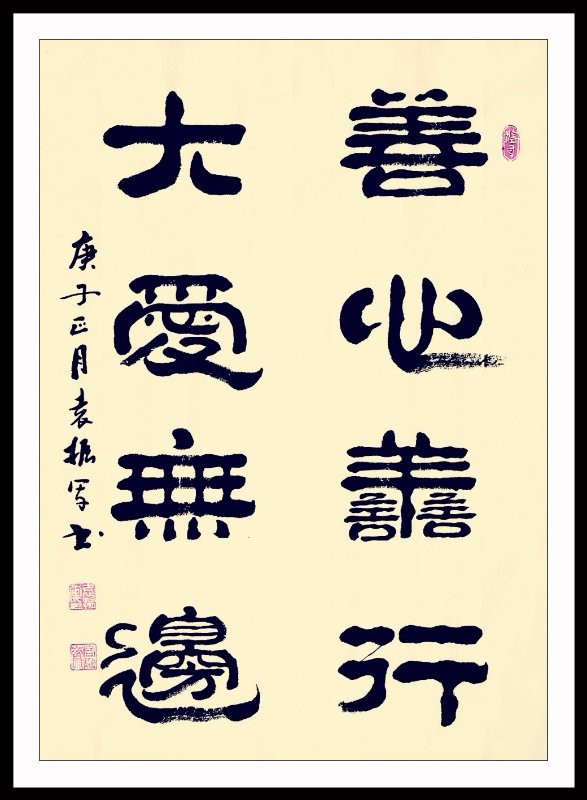 善心譱行
大愛無邊
庚子正月袁振军书